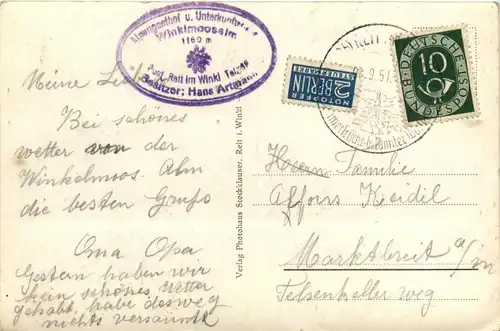 Alpengasthof u. Unterkunftshaus
Winklmoosalm
1160 m
Post Reit im Winkl
Besitzer: Hans Artmann
NOTOPFER
2 BERLIN
STEUERMARKE
9.51
DEUTSCHE BUNDESPOST
10
Meine Lieben
Bei schönes
wetter von der
Winkelmoos. Alm
die besten Grüß
Oma Opa
Gestern haben wir
kein schönes Wetter
gehabt, habe desweg
nichts versäumt
Verlag Photohaus Stockklauser, Reit i. Winkl
Familie
Keidil
Marktbreit a/m
Felsenkeller weg